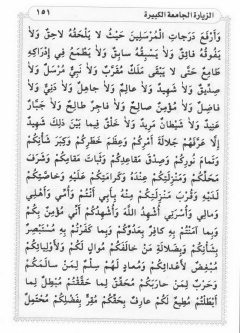 الزيارة الجامعة الكبيرة ١٥١
وَأَرْفَعَ دَرَجَاتِ الْمُرْسَلِينَ حَيْثُ لَا يَلْحَقُهُ لَاحِقٌ وَلَا
يَفُوقُهُ فَائِقٌ وَلَا يَسْبِقُهُ سَابِقٌ وَلَا يَطْمَعُ فِي إِدْرَاكِهِ
طَامِعٌ حَتَّى لَا يَبْقَى مَلَكٌ مُقَرَّبٌ وَلَا نَبِيٌّ مُرْسَلٌ وَلَا
صِدِّيقٌ وَلَا شَهِيدٌ وَلَا عَالِمٌ وَلَا جَاهِلٌ وَلَا دَنِيٌّ وَلَا
فَاضِلٌ وَلَا مُؤْمِنٌ صَالِحٌ وَلَا فَاجِرٌ طَالِحٌ وَلَا جَبَّارٌ
عَنِيدٌ وَلَا شَيْطَانٌ مَرِيدٌ وَلَا خَلْقٌ فِيمَا بَيْنَ ذَلِكَ شَهِيدٌ
إِلَّا عَرَّفَهُمْ جَلَالَةَ أَمْرِكُمْ وَعِظَمَ خَطَرِكُمْ وَكِبَرَ شَأْنِكُمْ
وَتَمَامَ نُورِكُمْ وَصِدْقَ مَقَاعِدِكُمْ وَثَبَاتَ مَقَامِكُمْ وَشَرَفَ
مَحَلِّكُمْ وَمَنْزِلَتِكُمْ عِنْدَهُ وَكَرَامَتَكُمْ عَلَيْهِ وَخَاصَّتَكُمْ
لَدَيْهِ وَقُرْبَ مَنْزِلَتِكُمْ مِنْهُ بِأَبِي أَنْتُمْ وَأُمِّي وَأَهْلِي
وَمَالِي وَأُسْرَتِي أُشْهِدُ اللَّهَ وَأُشْهِدُكُمْ أَنِّي مُؤْمِنٌ بِكُمْ
وَبِمَا آمَنْتُمْ بِهِ كَافِرٌ بِعَدُوِّكُمْ وَبِمَا كَفَرْتُمْ بِهِ مُسْتَبْصِرٌ
بِشَأْنِكُمْ وَبِضَلَالَةِ مَنْ خَالَفَكُمْ مُوَالٍ لَكُمْ وَلِأَوْلِيَائِكُمْ
مُبْغِضٌ لِأَعْدَائِكُمْ وَمُعَادٍ لَهُمْ سِلْمٌ لِمَنْ سَالَمَكُمْ
وَحَرْبٌ لِمَنْ حَارَبَكُمْ مُحَقِّقٌ لِمَا حَقَّقْتُمْ مُبْطِلٌ لِمَا
أَبْطَلْتُمْ مُطِيعٌ لَكُمْ عَارِفٌ بِحَقِّكُمْ مُقِرٌّ بِفَضْلِكُمْ مُحْتَمِلٌ